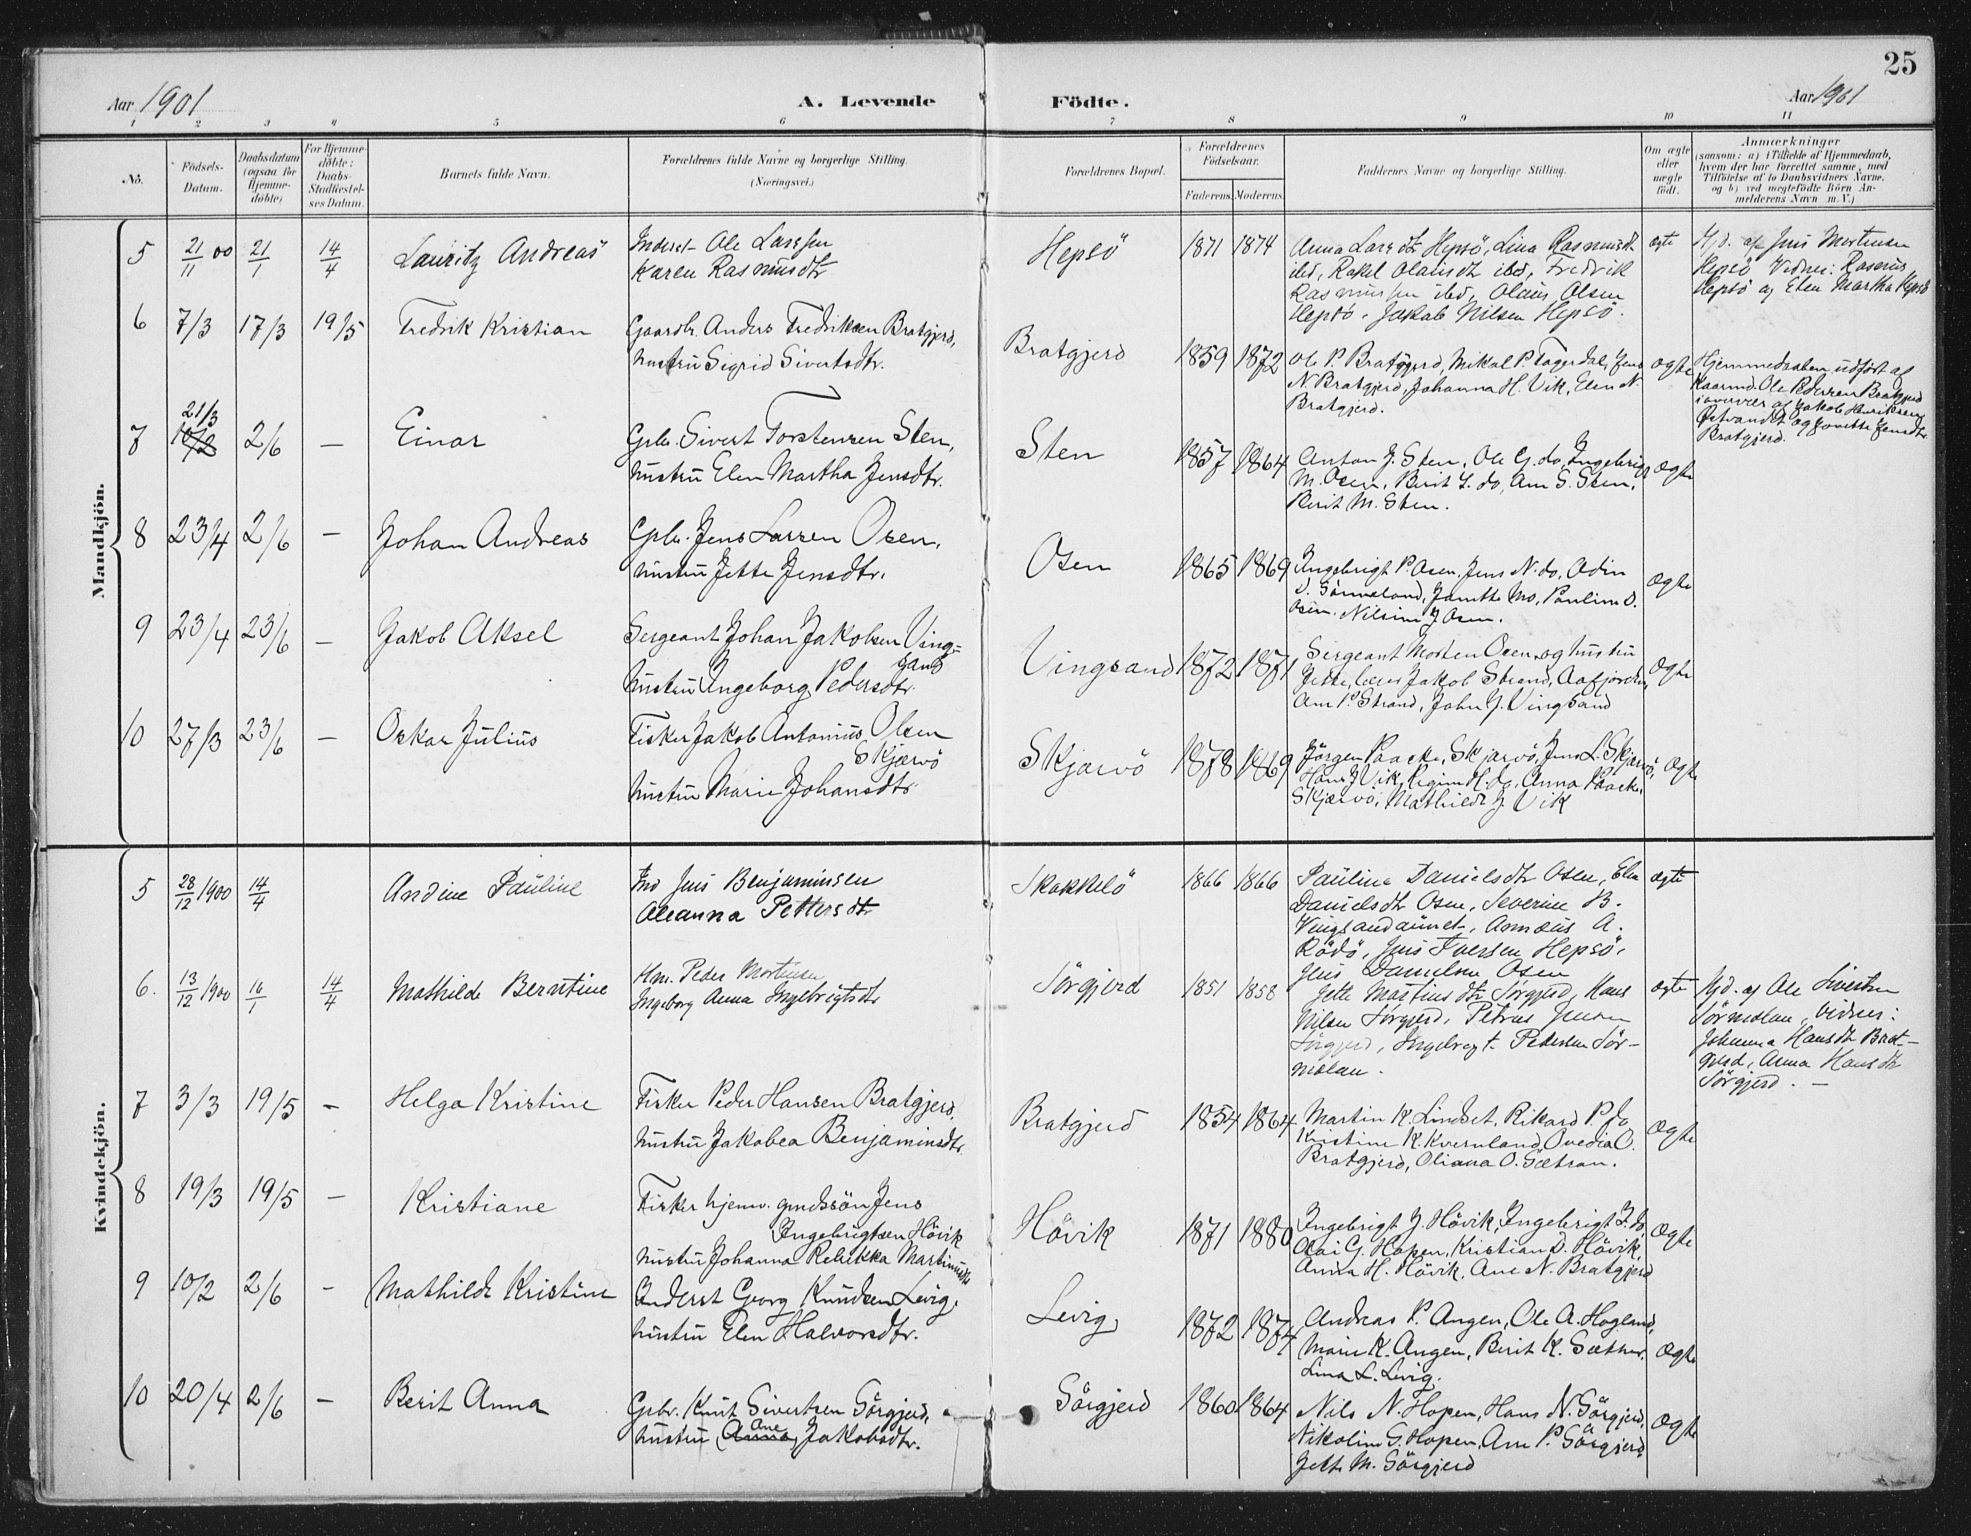 25
Aar 1901
A. Levende
Födte.
Aar 1901
1 2 3 4 5 6 7 8 9 10 11
No.
Födsels-
Datum.
Daabsdatum
(ogsaa for
Hjemme-
döbte)
For Hjemme-
döbte:
Daabs-
Stadfæstel-
ses Datum.
Barnets fulde Navn.
Forældrenes fulde Navne og borgerlige Stilling.
(Næringsvei.)
Forældrenes Bopæl.
Forældrenes
Födselsaar.
Faderens. Moderens.
Faddernes Navne og borgerlige Stilling.
Om ægte
eller
uægte
födt.
Anmærkninger
(saasom: a) i Tilfælde af Hjemmedaab,
hvem der har forrettet samme, med
Tilföielse af to Daabsvidners Navne,
og b) ved uægtefödte Börn An-
melderens Navn m. V.)
Mandkjön.
5 21/11 00 21/1 14/4 Lauritz Andreas
Inderst Ole Larssen
Karen Rasmusdtr
Hepsö 1871 1874
Anna Larsdtr Hepsö, Lina Rasmusdt.
ibd, Rakel Olausdtr ibd, Fredrik
Rasmussen ibd, Olaus Olsen
Hepsö, Jakob Nilsen Hepsö.
ægte
Hjd. af Jens Mortensen
Hepsö Vidner: Rasmus
Hepsö og Elen Martha Hepsö
6 7/3 17/3 19/5 Fredrik Kristian
Gaardbr. Anders Fredriksen Bratgjerd,
hustru Sigrid Sivertsdtr.
Bratgjerd 1859 1872
Ole P. Bratgjerd, Mikal P. Fagerdal, Jens
N. Bratgjerd, Johanna H. Vik, Elen N.
Bratgjerd.
ægte
Hjemmedaaben udført af
Kaarmd. Ole Pedersen Bratgjerd
i overvær af Jakob Henriksen
Østvandet og Jovette Jensdtr.
Bratgjerd.
7 21/3 10/2 2/6 — Einar
Gpbr. Sivert Torstensen Sten,
hustru Elen Martha Jensdtr.
Sten 1857 1864
Anton J. Sten, Ole G. do, Ingebrigt
M. Osen, Berit S. do, Ane S. Sten,
Berit M. Sten.
Ægte
8 23/4 2/6 — Johan Andreas
Gpbr. Jens Larsen Osen,
hustru Jette Jensdtr.
Osen 1865 1869
Ingebrigt P. Osen, Jens N. do, Odin
D. Sönneland, Janette Mo, Pauline D.
Osen, Nilsine J Osen.
Ægte
9 23/4 23/6 — Jakob Aksel
Sergeant Johan Jakobsen Ving-
sand
hustru Ingeborg Pedersdtr.
Vingsand 1872 1871
Sergeant Morten Osen og hustru
Jette, Jakob Strand, Aafjorden,
Ane P. Strand, John J. Vingsand
Ægte
10 27/3 23/6 — Oskar Julius
Fisker Jakob Antonius Olsen
Skjærvö
hustru Marie Johansdtr
Skjærvö 1878 1869
Jörgen Paacke, Skjærvö, Jens L. Skjærvö,
Hans J Vik, Regine H. do, Anna Paacke,
Skjærvö, Mathilde J Vik
Ægte
Kvindekjön.
5 28/12 1900 14/4 Andine Pauline
Ind Jens Benjaminsen
Oleanna Pettersdtr
Skakkelö 1866 1866
Pauline Danielsdtr Osen, Elen
Danielsdtr Osen, Severine B.
Vingsandaunet, Annæus A.
Rödö, Jens Iversen Hepsö,
Jens Danielsen Osen
ægte
6. 13/12 1900 16/1 14/4 Mathilde Berntine
Hm. Peder Mortensen
Ingeborg Anna Ingebrigtsdtr
Sörgjerd 1851 1858
Jette Martinusdtr Sörgjerd, Hans
Nilsen Sörgjerd, Petrus Jensen
Sörgjerd, Ingebrigt Pedersen Sör-
melan.
ægte
Hjd. af Ole Sivertsen
Sörmelan, Vidner:
Johanna Hansdtr Brat-
gjerd, Anna Hansdtr
Sörgjerd. —
7 3/3 19/5 — Helga Kristine
Fisker Peder Hansen Bratgjerd,
hustru Jakobea Benjaminsdtr.
Bratgjerd 1854 1864
Martin K. Lindset, Rikard P. do,
Kristine K. Kvernland, Ovedia O.
Bratgjerd, Oliana O. Sætran.
Ægte
8 19/3 19/5 — Kristiane
Fisker hjemv. gmdssön Jens
Ingebrigtsen Hövik
hustru Johanna Rebekka Martinusdtr
Hövik 1871 1880
Ingebrigt J. Hövik, Ingebrigt I. do,
G. Hopen, Kristian D. Hövik,
Anna H. Hövik, Ane N. Bratgjerd
Ægte
9 10/2 2/6 — Mathilde Kristine
Inderst Georg Knudsen Levig,
hustru Elen Halvorsdtr.
Levig 1872 1874
Andreas P. Angen, Ole A. Hogland,
Marie K. Angen, Berit K. Sæther,
Lina L. Levig.
Ægte
10 20/4 2/6 — Berit Anna
Gpbr. Knut Sivertsen Sörgjerd,
hustru Anna Ane Jakobsdtr.
Sörgjerd 1860 1864
Nils N. Hopen, Hans N. Sörgjerd,
Nikoline G. Hopen, Ane P. Sörgjerd,
Jette M. Sörgjerd
Ægte